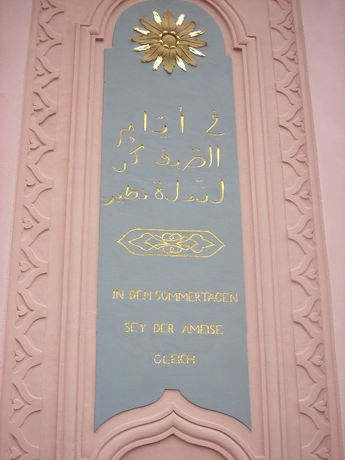 في أيام
الصيف كن
لنملة نظير
IN DEN SOMMERTAGEN
SEY DER AMEISE
GLEICH